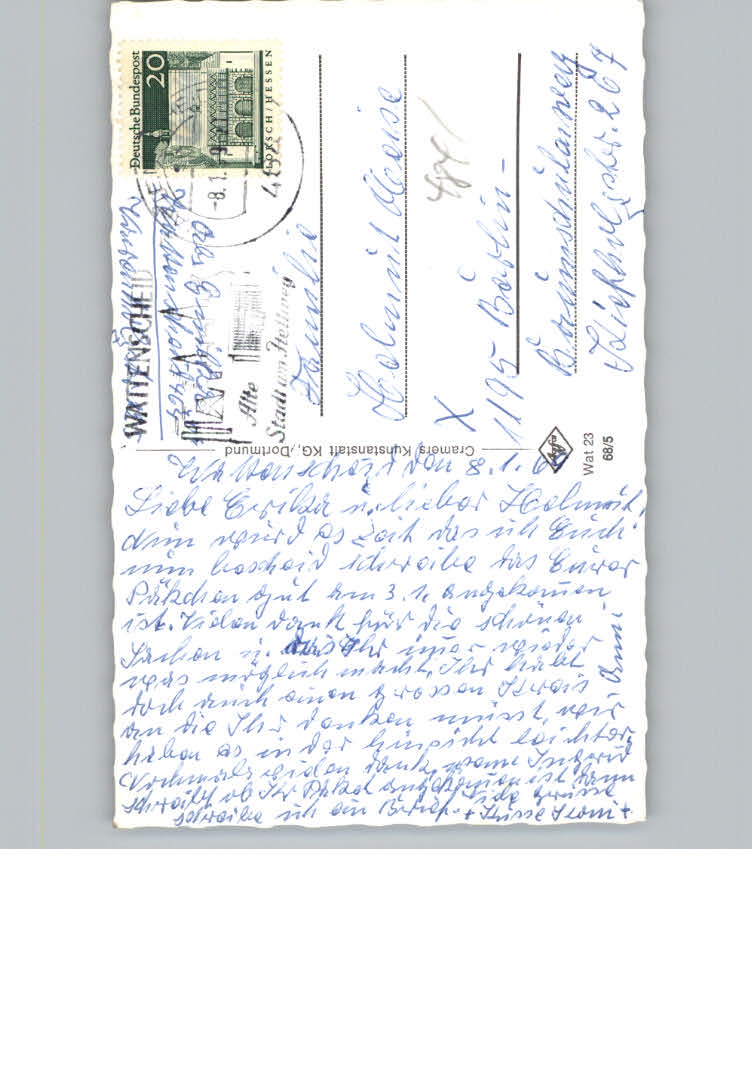 Wattenscheid den 8. 1. 69
Liebe Erika u. lieber Helmut!
Nun wird es Zeit das ich Euch
nun bescheid schreibe das Euer
Päkchen gut am 3. 1. angekomen
ist. Vielen dank für die schönen
Sachen u. das Ihr imer wieder
was möglich macht, Ihr habt
doch auch einen grossen Kreis
an die Ihr denken müsst, wir
haben es in der hinsicht leichter.
Nochmals vielen dank, wenn Ingrid
schreibt ob Ihr Paket angekomen ist dann
schreibe ich ein Brief. Viele grüsse
+ Küsse
Deutsche Bundespost
20
LORSCH/HESSEN
-8.1.
WATTENSCHEID
Alte
Stadt am Hellweg
Wattenscheid
Familie
Helmut
X
1195 Berlin-
Baumschulenweg
Kiefholzstr. 267
Cramers Kunstanstalt KG, Dortmund
Agfa
Wat 23
68/5